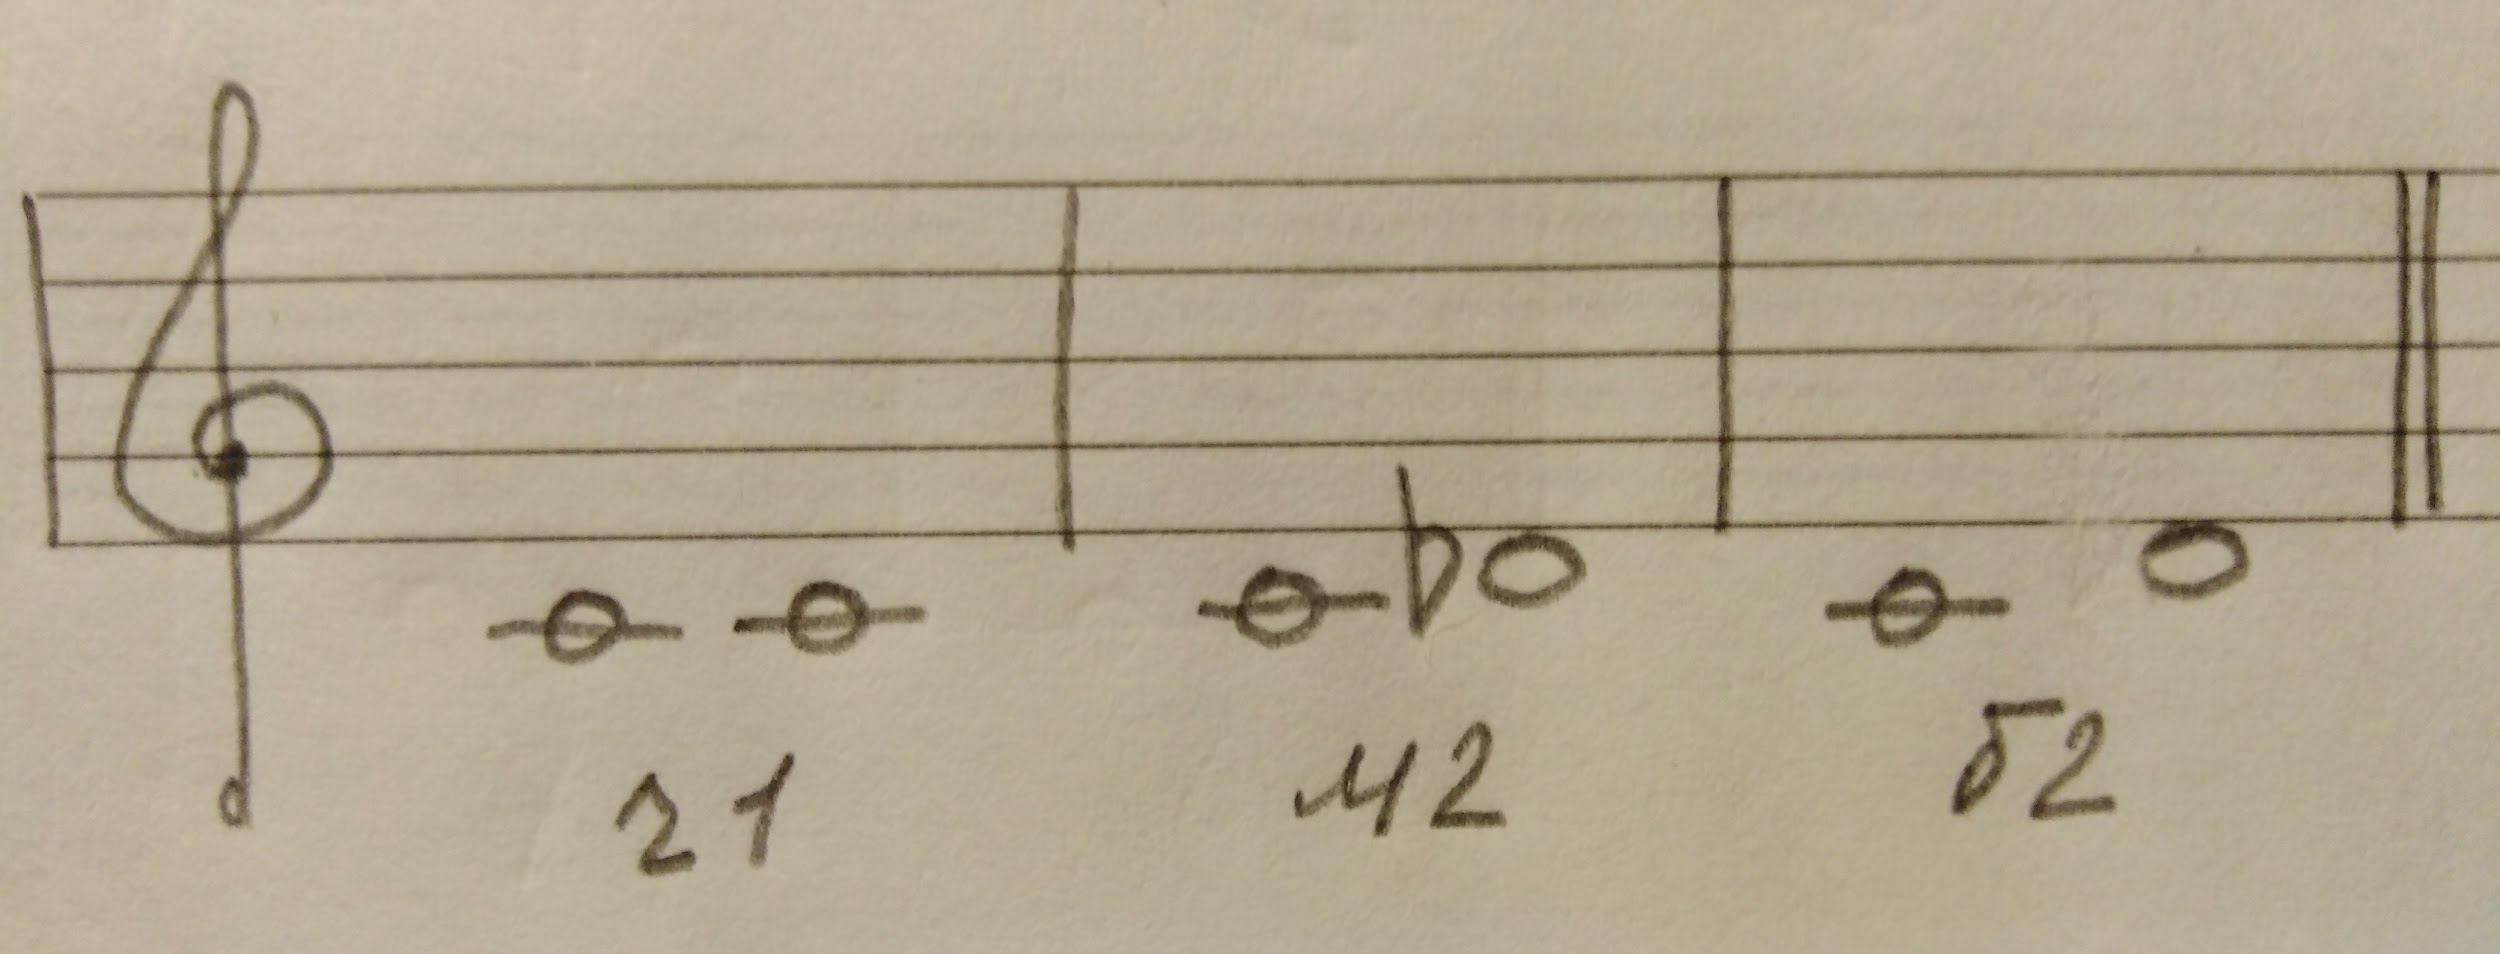 ч1 м2 б2